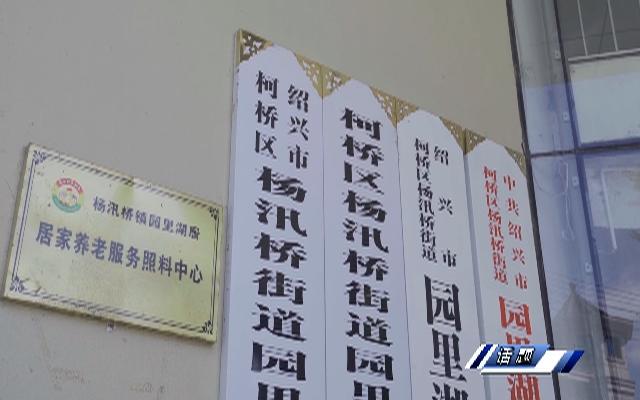 杨汛桥镇园里湖居
居家养老服务照料中心
绍兴市
柯桥区杨汛桥街道园里
柯桥区杨汛桥街道园里
绍兴市
柯桥区杨汛桥街道
园里湖
中共绍兴市
柯桥区杨汛桥街道
园里湖
话吧